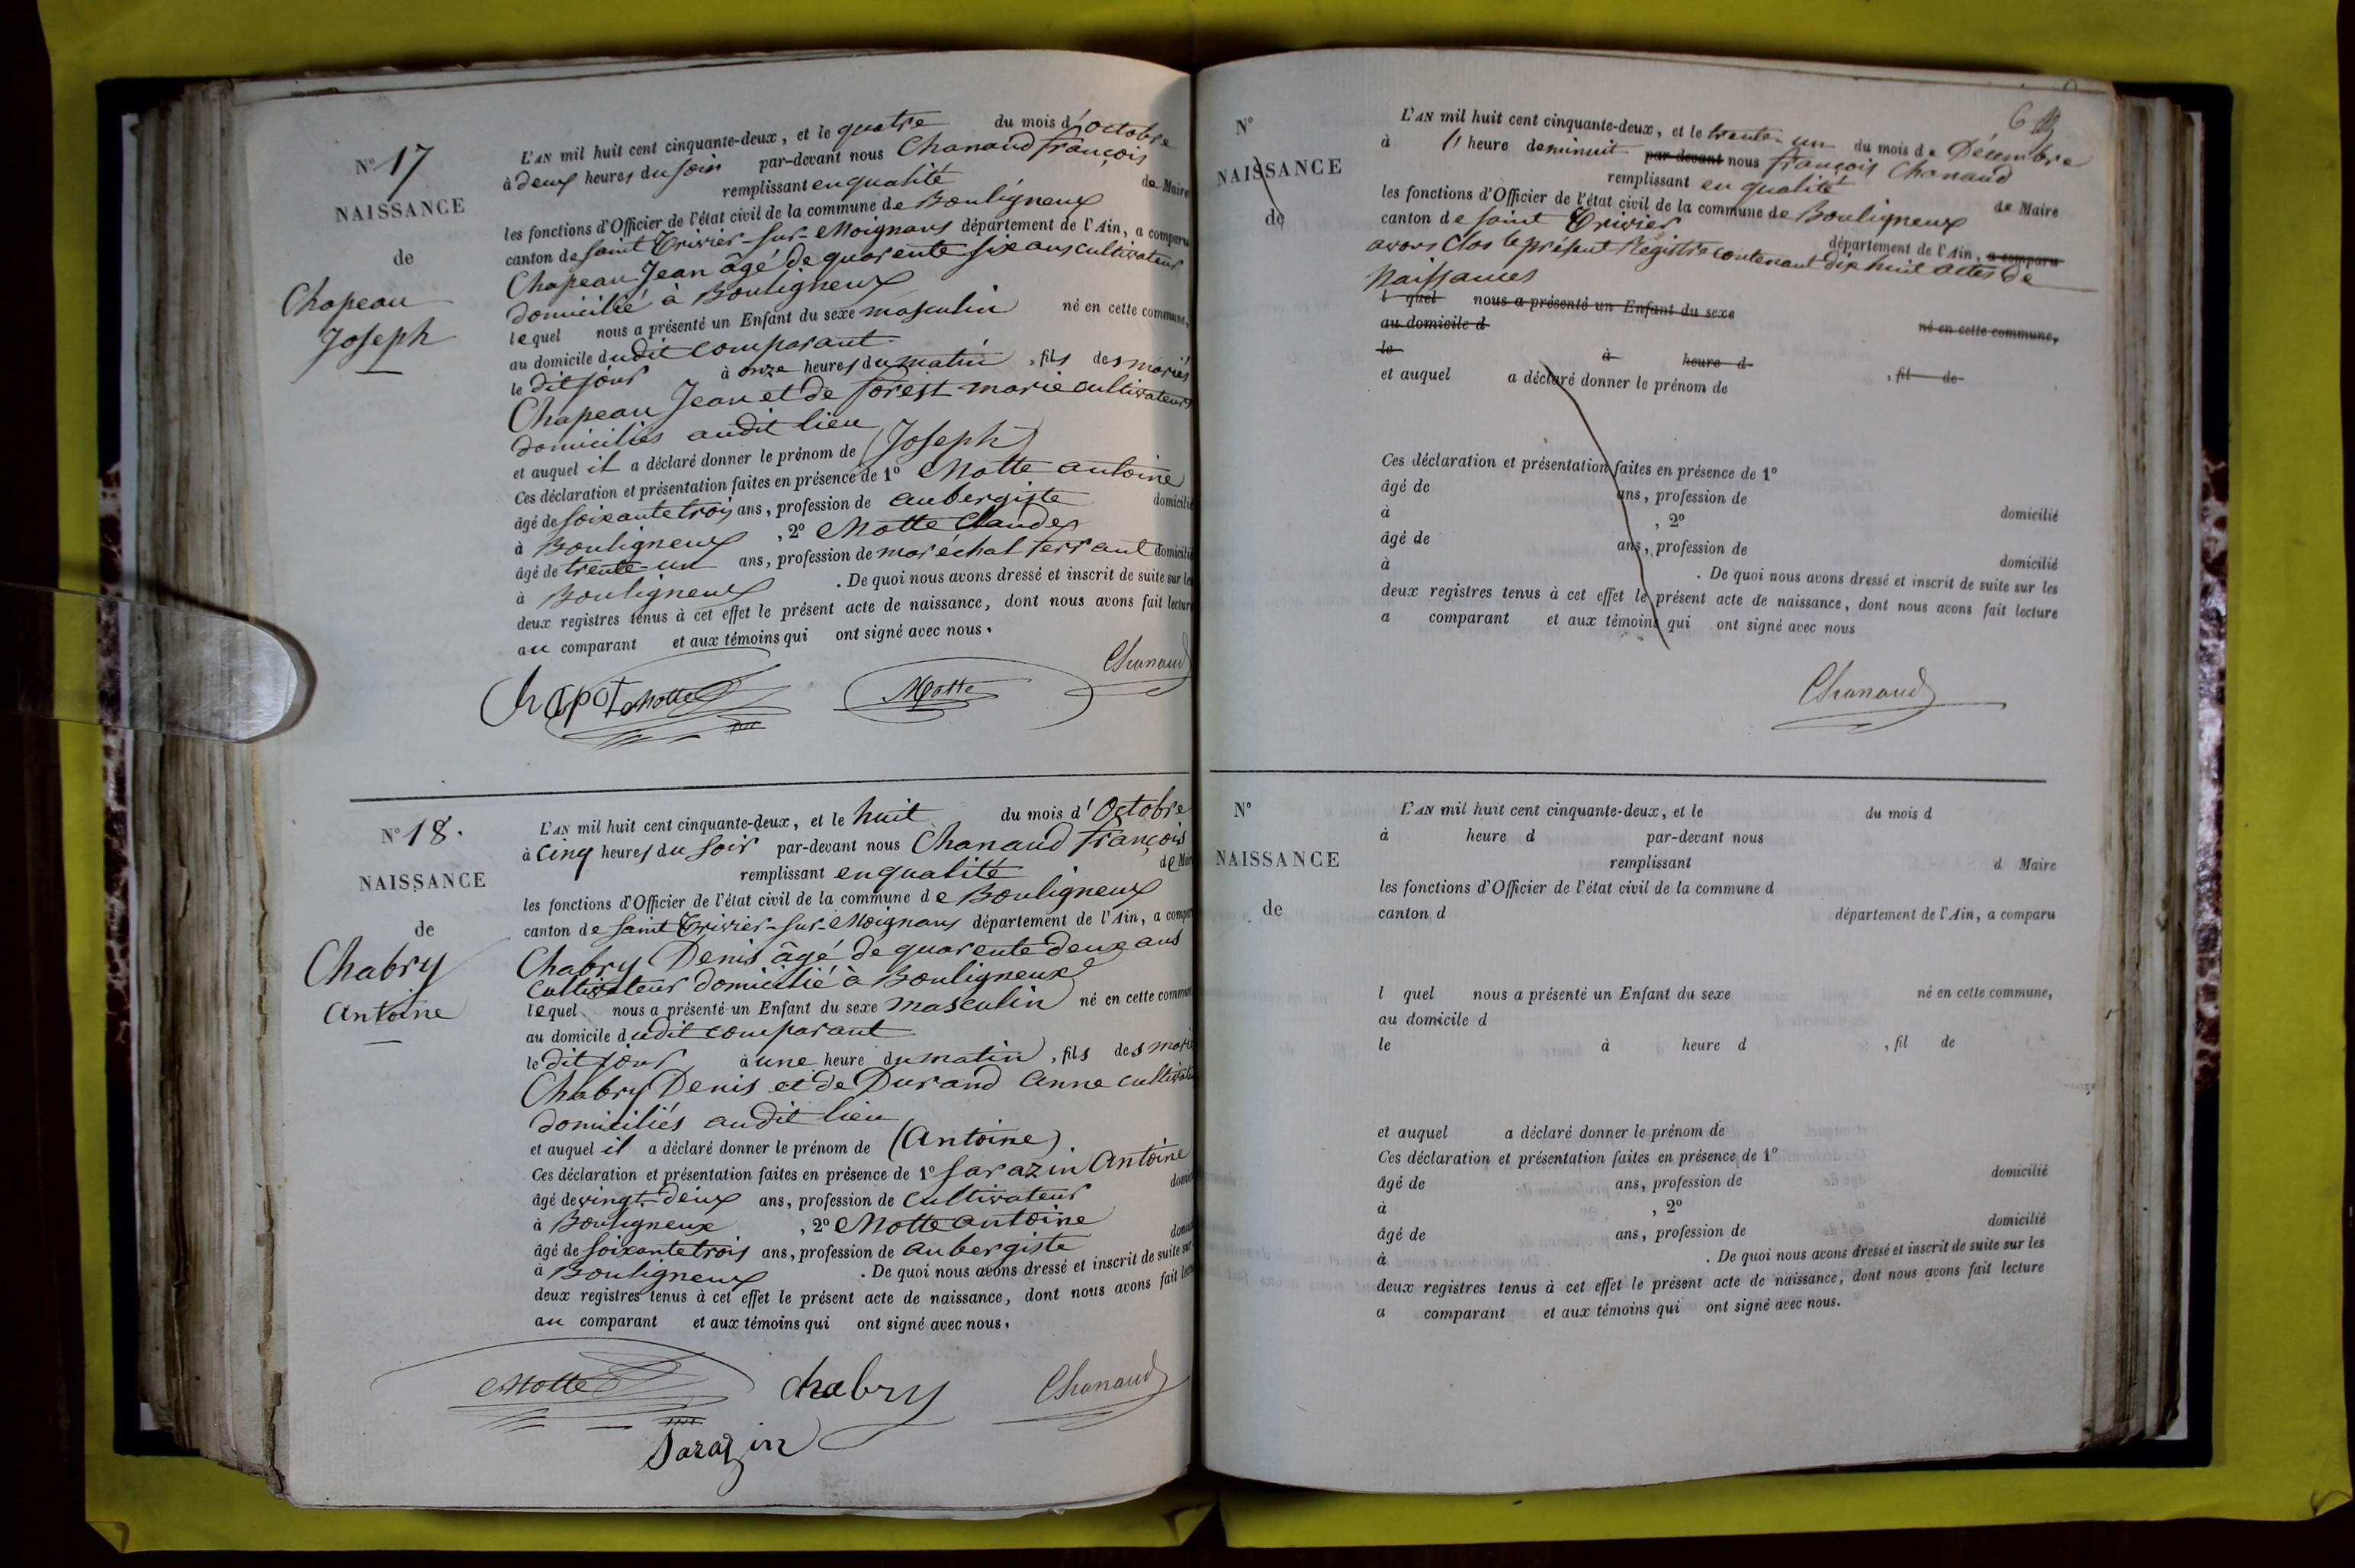 N° 17
NAISSANCE
de
Chapeau
Joseph
L'AN mil huit cent cinquante-deux, et le quatre du mois d'Octobre
à deux heures du soir par-devant nous Chanaud françois
remplissant en qualité de Maire
les fonctions d'Officier de l'état civil de la commune de Bouligneux
canton de saint Trivier-sur-Moignans département de l'Ain, a comparu
Chapeau Jean âgé de quarente six ans cultivateur
domicilié à Bouligneux
lequel nous a présenté un Enfant du sexe masculin né en cette commune,
au domicile dudit comparant
le dit jour à onze heures du matin, fils des mariés
Chapeau Jean et de forest marie cultivateurs
domiciliés audit lieu
et auquel il a déclaré donner le prénom de (Joseph)
Ces déclaration et présentation faites en présence de 1° Motte antoine
âgé de soixante trois ans, profession de aubergiste domicilié
à Bouligneux, 2° Motte Claude
âgé de trente-un ans, profession de maréchal ferrant domicilié
à Bouligneux. De quoi nous avons dressé et inscrit de suite sur les
deux registres tenus à cet effet le présent acte de naissance, dont nous avons fait lecture
au comparant et aux témoins qui ont signé avec nous.
Chapot Motte Motte Chanaud
N° 18.
NAISSANCE
de
Chabry
Antoine
L'AN mil huit cent cinquante-deux, et le huit du mois d'Octobre
à cinq heures du soir par-devant nous Chanaud françois
remplissant en qualité de Maire
les fonctions d'Officier de l'état civil de la commune de Bouligneux
canton de saint Trivier-sur-Moignans département de l'Ain, a comparu
Chabry Denis âgé de quarente deux ans
cultivateur domicilié à Bouligneux
lequel nous a présenté un Enfant du sexe masculin né en cette commune
au domicile dudit comparant
le dit jour à une heure du matin, fils des mariés
Chabry Denis et de Durand Anne cultivateurs
domiciliés audit lieu
et auquel il a déclaré donner le prénom de (Antoine).
Ces déclaration et présentation faites en présence de 1° Sarazin Antoine
âgé de vingt-deux ans, profession de cultivateur domicilié
à Bouligneux, 2° Motte antoine
âgé de soixante trois ans, profession de aubergiste domicilié
à Bouligneux. De quoi nous avons dressé et inscrit de suite sur
deux registres tenus à cet effet le présent acte de naissance, dont nous avons fait lecture
au comparant et aux témoins qui ont signé avec nous.
Motte chabry Chanaud
Sarazin
6
N°
NAISSANCE
de
L'AN mil huit cent cinquante-deux, et le trente-un du mois de Décembre
à 11 heure de minuit par-devant nous françois Chanaud
remplissant en qualité de Maire
les fonctions d'Officier de l'état civil de la commune de Bouligneux
canton de saint Trivier département de l'Ain, a comparu
avons Clos le présent Registre contenant dix huit actes de
Naissances
l quel nous a présenté un Enfant du sexe né en cette commune,
au domicile d
le à heure d, fil de
et auquel a déclaré donner le prénom de
Ces déclaration et présentation faites en présence de 1°
âgé de ans, profession de domicilié
à, 2°
âgé de ans, profession de domicilié
à. De quoi nous avons dressé et inscrit de suite sur les
deux registres tenus à cet effet le présent acte de naissance, dont nous avons fait lecture
a comparant et aux témoins qui ont signé avec nous
Chanaud
N°
NAISSANCE
de
L'AN mil huit cent cinquante-deux, et le du mois d
à heure d par-devant nous
remplissant d Maire
les fonctions d'Officier de l'état civil de la commune d
canton d département de l'Ain, a comparu
l quel nous a présenté un Enfant du sexe né en cette commune,
au domicile d
le à heure d, fil de
et auquel a déclaré donner le prénom de
Ces déclaration et présentation faites en présence de 1°
âgé de ans, profession de domicilié
à, 2°
âgé de ans, profession de domicilié
à. De quoi nous avons dressé et inscrit de suite sur les
deux registres tenus à cet effet le présent acte de naissance, dont nous avons fait lecture
a comparant et aux témoins qui ont signé avec nous.